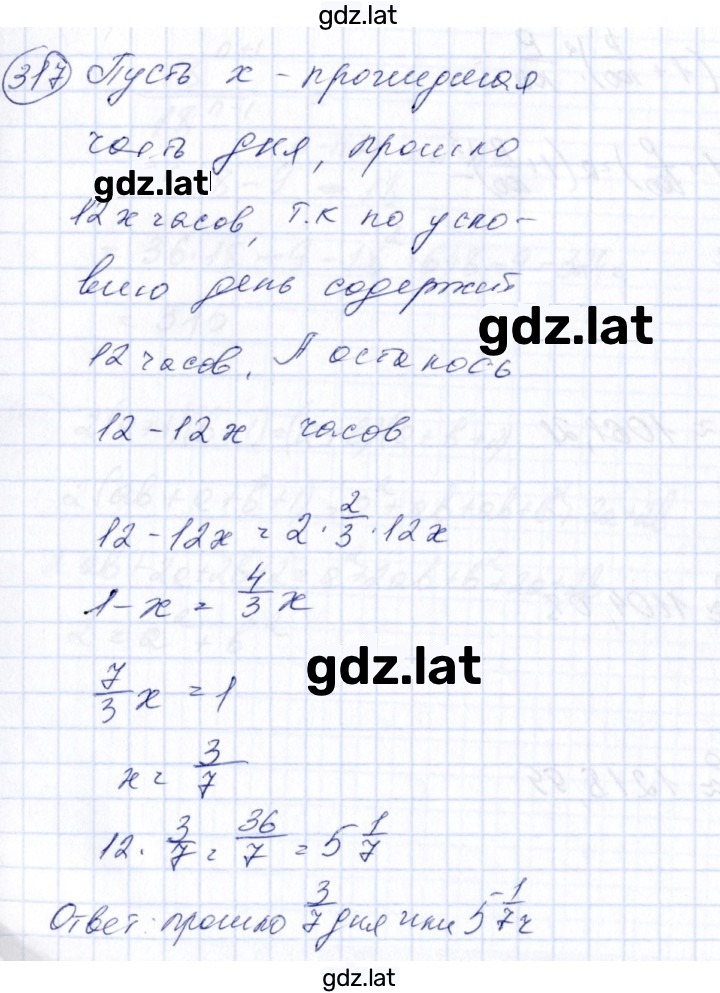 gdz.lat
317 Пусть x - прошедшая
часть дня, прошло
gdz.lat
12x часов, т.к по усло-
вию день содержит
gdz.lat
12 часов. А осталось
12 - 12x часов
12 - 12x = 2 · 2/3 · 12x
1 - x = 4/3 x
gdz.lat
7/3 x = 1
x = 3/7
12 · 3/7 = 36/7 = 5 1/7
Ответ: прошло 3/7 дня или 5 1/7 ч
gdz.lat